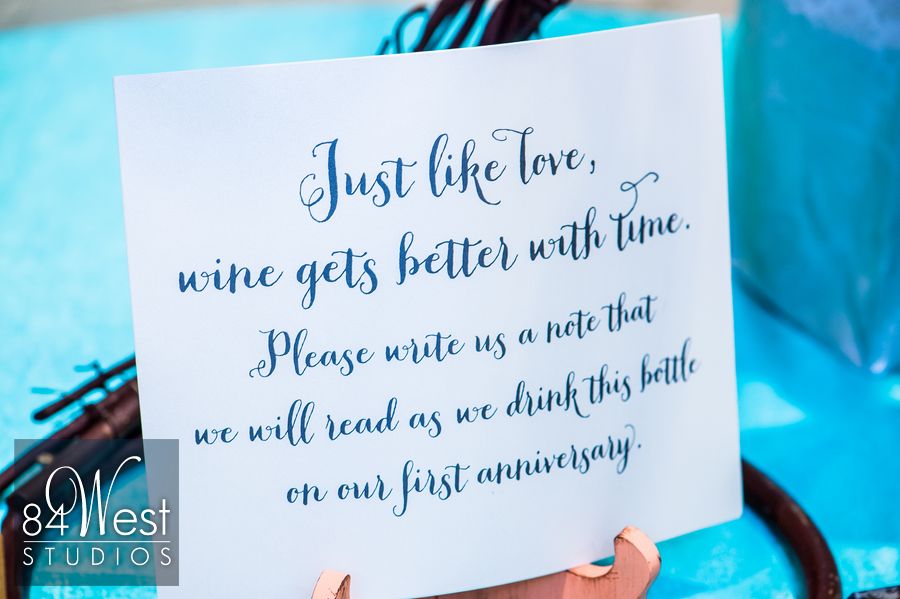 Just like love,
wine gets better with time.
Please write us a note that
we will read as we drink this bottle
on our first anniversary.
84West
STUDIOS